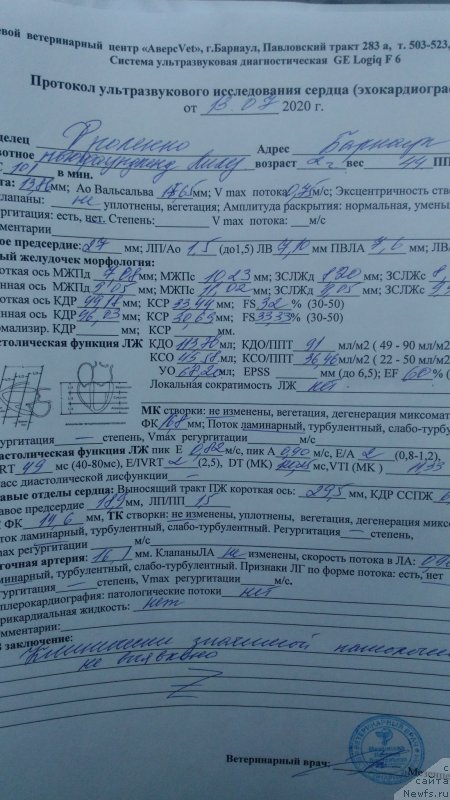 евой ветеринарный центр «АверсVet», г.Барнаул, Павловский тракт 283 а, т. 503-523,
Система ультразвуковая диагностическая GE Logiq F 6
Протокол ультразвукового исследования сердца (эхокардиограф
от 13.07 2020 г.
делец Фроленко Адрес Барнаул
вотное возраст 2 г вес 44 ПП
: 101 в мин.
та: мм; Ао Вальсальва мм; V max потока 0,75 м/с; Эксцентричность ство
лапаны: не уплотнены, вегетация; Амплитуда раскрытия: нормальная, умень
гургитация: есть, нет. Степень: V max потока: м/с
мментарии
ое предсердие: 27 мм; ЛП/Ао 1,5 (до1,5) ЛВ 7,10 мм ПВЛА 7,6 мм; ЛВ/
ый желудочек морфология:
откая ось МЖПд 7,08 мм; МЖПс 10,23 мм; ЗСЛЖд 8,20 мм; ЗСЛЖс
нная ось МЖПд 9,05 мм; МЖПс 11,02 мм; ЗСЛЖд 9,05 мм; ЗСЛЖс
откая ось КДР 49,17 мм; КСР 33,44 мм; FS 32 % (30-50)
нная ось КДР 46,03 мм; КСР 30,69 мм; FS 33,33 % (30-50)
рмализир. КДР мм; КСР мм.
столическая функция ЛЖ КДО 113,78 мл; КДО/ППТ 91 мл/м2 ( 49 - 90 мл/м2
КСО 45,58 мл; КСО/ППТ 36,46 мл/м2 ( 22 - 50 мл/м2
УО 68,20 мл; EPSS мм (до 6,5); EF 60 % (
Локальная сократимость ЛЖ нет
МК створки: не изменены, вегетация, дегенерация миксомат
ФК мм; Поток ламинарный, турбулентный, слабо-турбу
ургитация — степень, Vмах регургитации м/с
астолическая функция ЛЖ пик Е 0,82 м/с, пик А 0,40 м/с, Е/А 2 (0,8-1,2).
IVRT 49 мс (40-80мс), E/IVRT 2 (2,5), DT (МК) мс,VTI (МК )
сс диастолической дисфункции
авые отделы сердца: Выносящий тракт ПЖ короткая ось: 29,5 мм, КДР ССПЖ
авое предсердие мм, ЛП/ПП 1,5
ФК 19,6 мм, ТК створки: не изменены, уплотнены, вегетация, дегенерация миксо
ток ламинарный, турбулентный, слабо-турбулентный. Регургитация — степень,
мах регургитации м/с
гочная артерия: 16,1 мм. КлапаныЛА не изменены, скорость потока в ЛА:
минарный, турбулентный, слабо-турбулентный. Признаки ЛГ по форме потока: есть, нет
гургитация — степень, Vмах регургитации м/с.
пплерокардиография: патологические потоки нет
рикардиальная жидкость: нет
мментарии:
З заключение: Клинически значимой патологии
не выявлено
Ветеринарный врач:
Newfs.ru